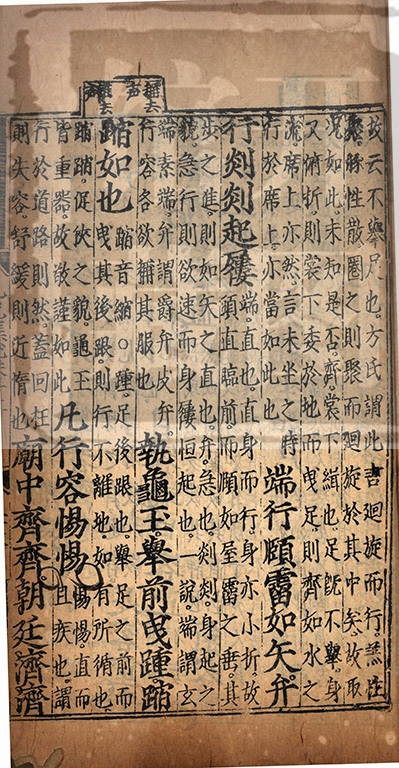 故云不舉足也。方氏謂此言迴旋而行。羔性
聚豚性散。圈之則聚而迴旋於其中矣。故取
况如此。未知是否。齊裳下緝也。足旣不舉。身
又俯折。則裳下委於地而曳足。則齊如水之
流。席上亦然。言未坐之時
行於席上。亦當如此也
端行頤霤如矢。弁
行剡剡起屨
端直也。直身而行。身亦小折。故
頭直臨前。而頤如屋霤之垂。其
步之進。則如矢之直也。弁急也。剡剡身起之
貌。急行則欲速而身屨恒起也。一說端謂玄
端素端。弁謂爵弁皮弁。
行容各欲稱其服也
執龜玉。舉前曳踵。蹜
蹜如也
蹜音縮。○踵足後跟也。舉足之前而
曳其後跟則行不離地。如有所循也。
蹜蹜。促狹之貌。龜玉
皆重器。故敬謹如此
凡行容愓愓
愓愓。直而
且疾也。謂
行於道路則然。蓋回枉
則失容。舒緩則近惰也
廟中齊齊朝廷濟濟